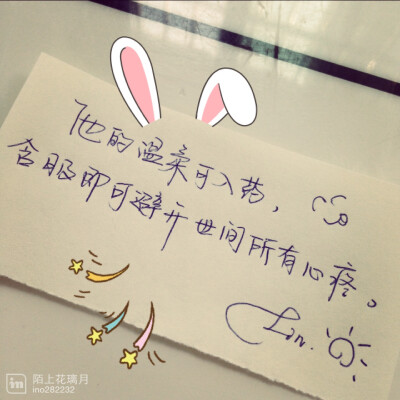 他的温柔可入药，
含服即可避开世间所有心疼。
in 陌上花璃月
ino282232